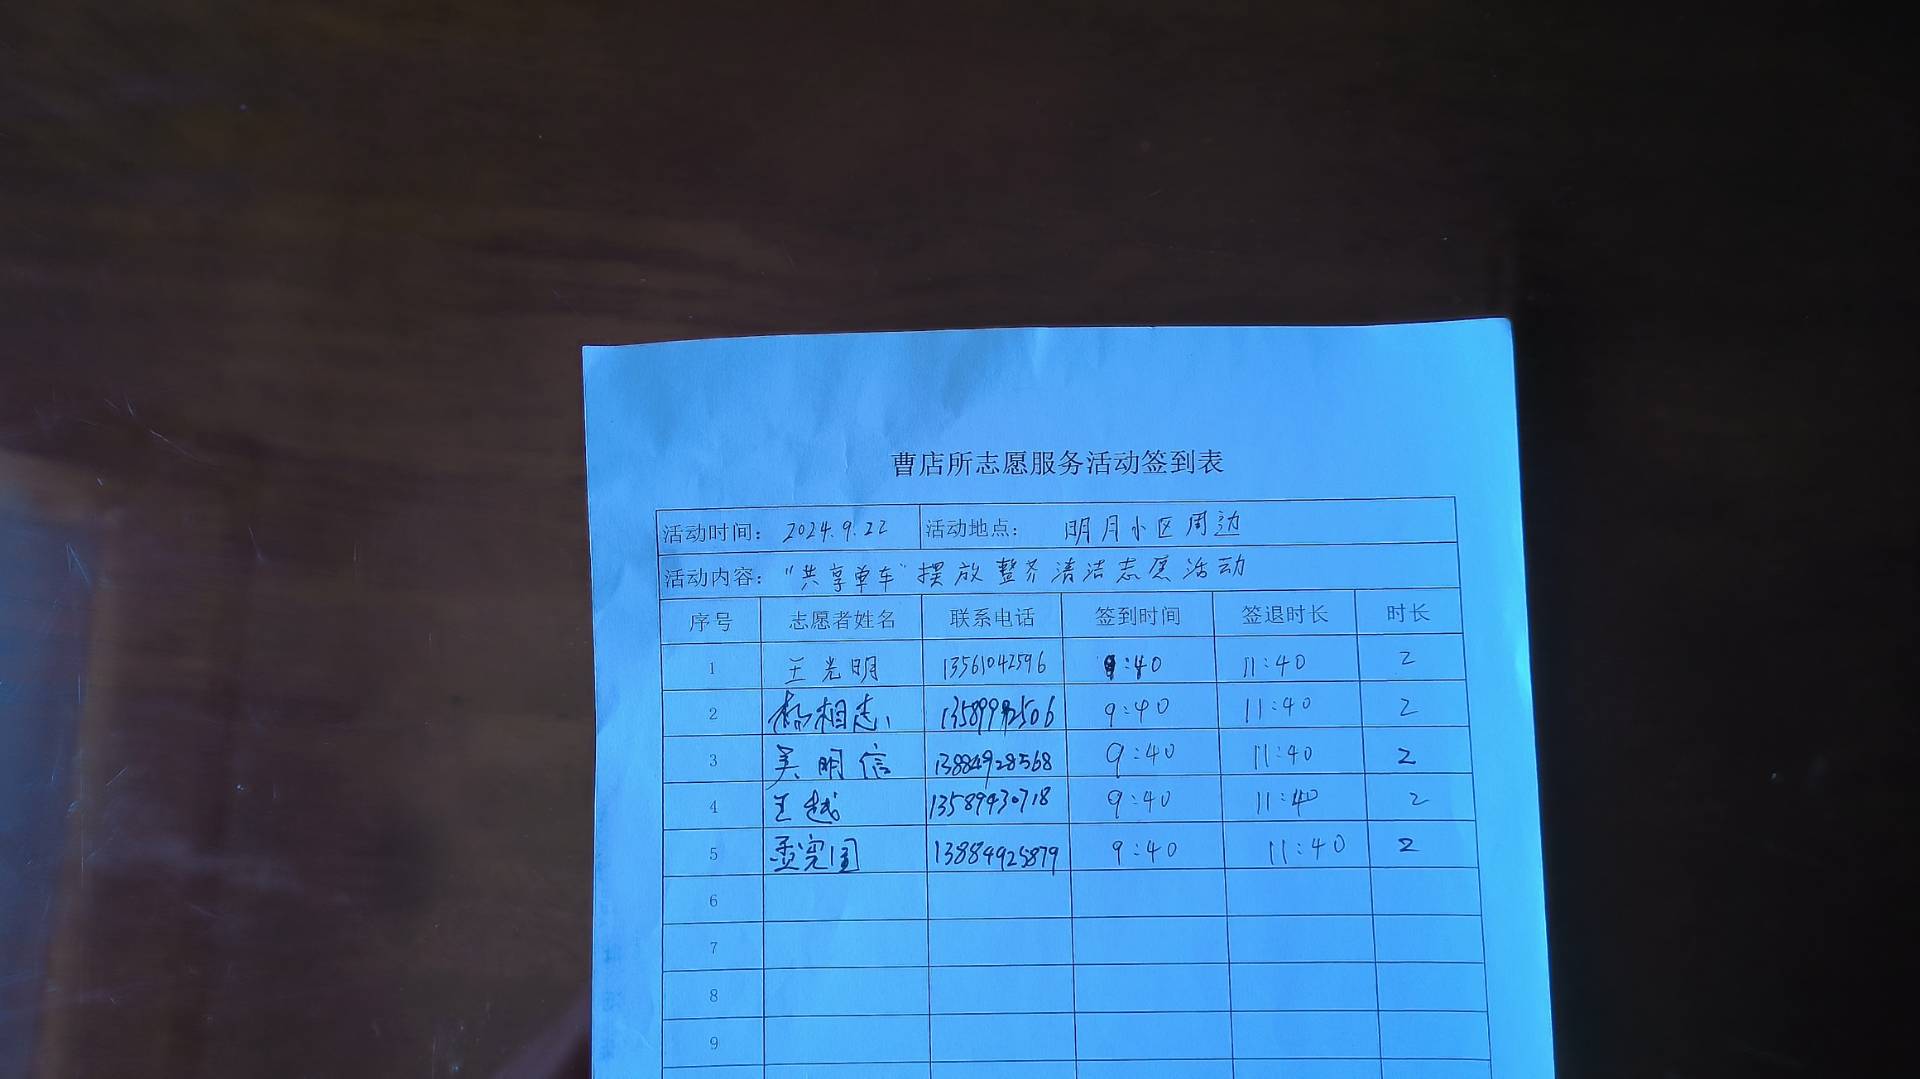 曹店所志愿服务活动签到表
活动时间： 2024.9.22 活动地点： 明月小区周边
活动内容： “共享单车”摆放整齐清洁志愿活动
序号 志愿者姓名 联系电话 签到时间 签退时长 时长
1 王光明 13561042596 9:40 11:40 2
2 杨相志 9:40 11:40 2
3 吴明信 13884928568 9:40 11:40 2
4 王越 13589430718 9:40 11:40 2
5 13884925879 9:40 11:40 2
6
7
8
9